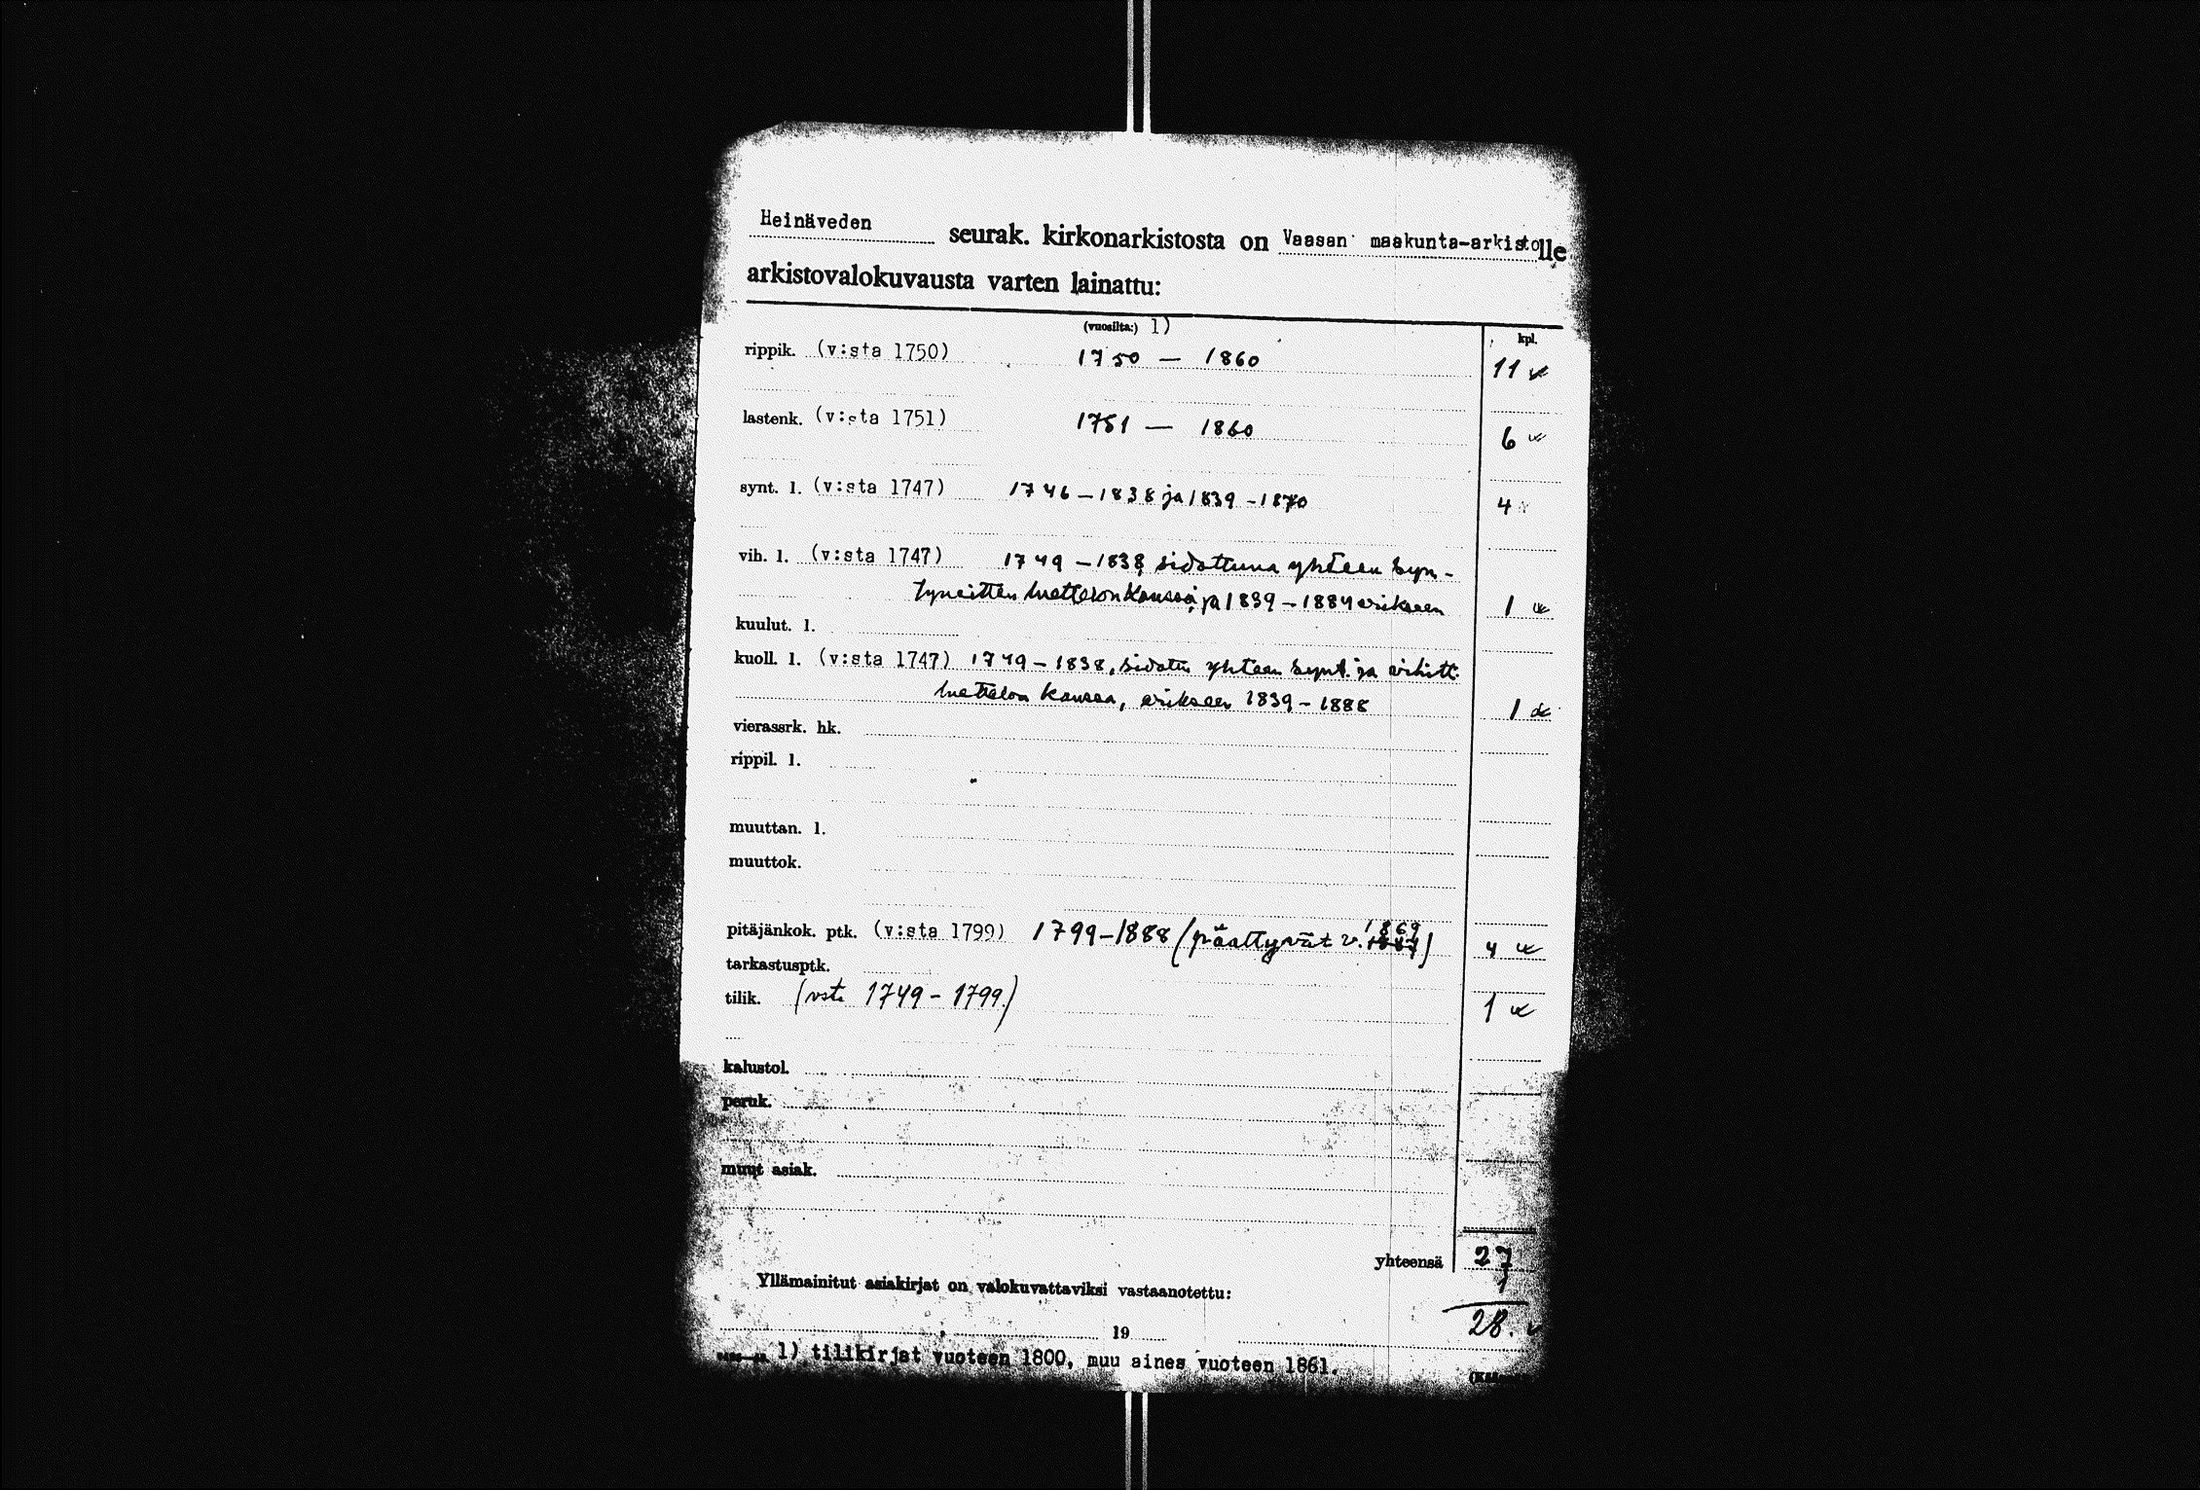 Heinäveden seurak. kirkonarkistosta on Vaasan maakunta-arkistolle
arkistovalokuvausta varten lainattu:
(vuosilta:) 1) kpl.
rippik. (v:sta 1750) 1750 — 1860 11
lastenk. (v:sta 1751) 1751 — 1860 6
synt. l. (v:sta 1747) 1746 – 1838 ja 1839 - 1870 4
vih. l. (v:sta 1747) 1749 – 1838, sidottuna yhteen syn-
tyneitten luettelon kanssa, ja 1839 – 1884 erikseen 1
kuulut. l.
kuoll. l. (v:sta 1747) 1749 – 1838, sidottu yhteen synt. ja vihitt.
luettelon kanssa, erikseen 1839 – 1888 1
vierassrk. hk.
rippil. l.
muuttan. l.
muuttok.
1869
pitäjänkok. ptk. (v:sta 1799) 1799-1888 (päättyvät v. 1887) 4
tarkastusptk.
tilik. (vst. 1749 - 1799.) 1
kalustol.
peruk.
muut asiak.
yhteensä 27
1
Yllämainitut asiakirjat on valokuvattaviksi vastaanotettu:
28.
19
1) tilikirjat vuoteen 1800, muu aines vuoteen 1861.